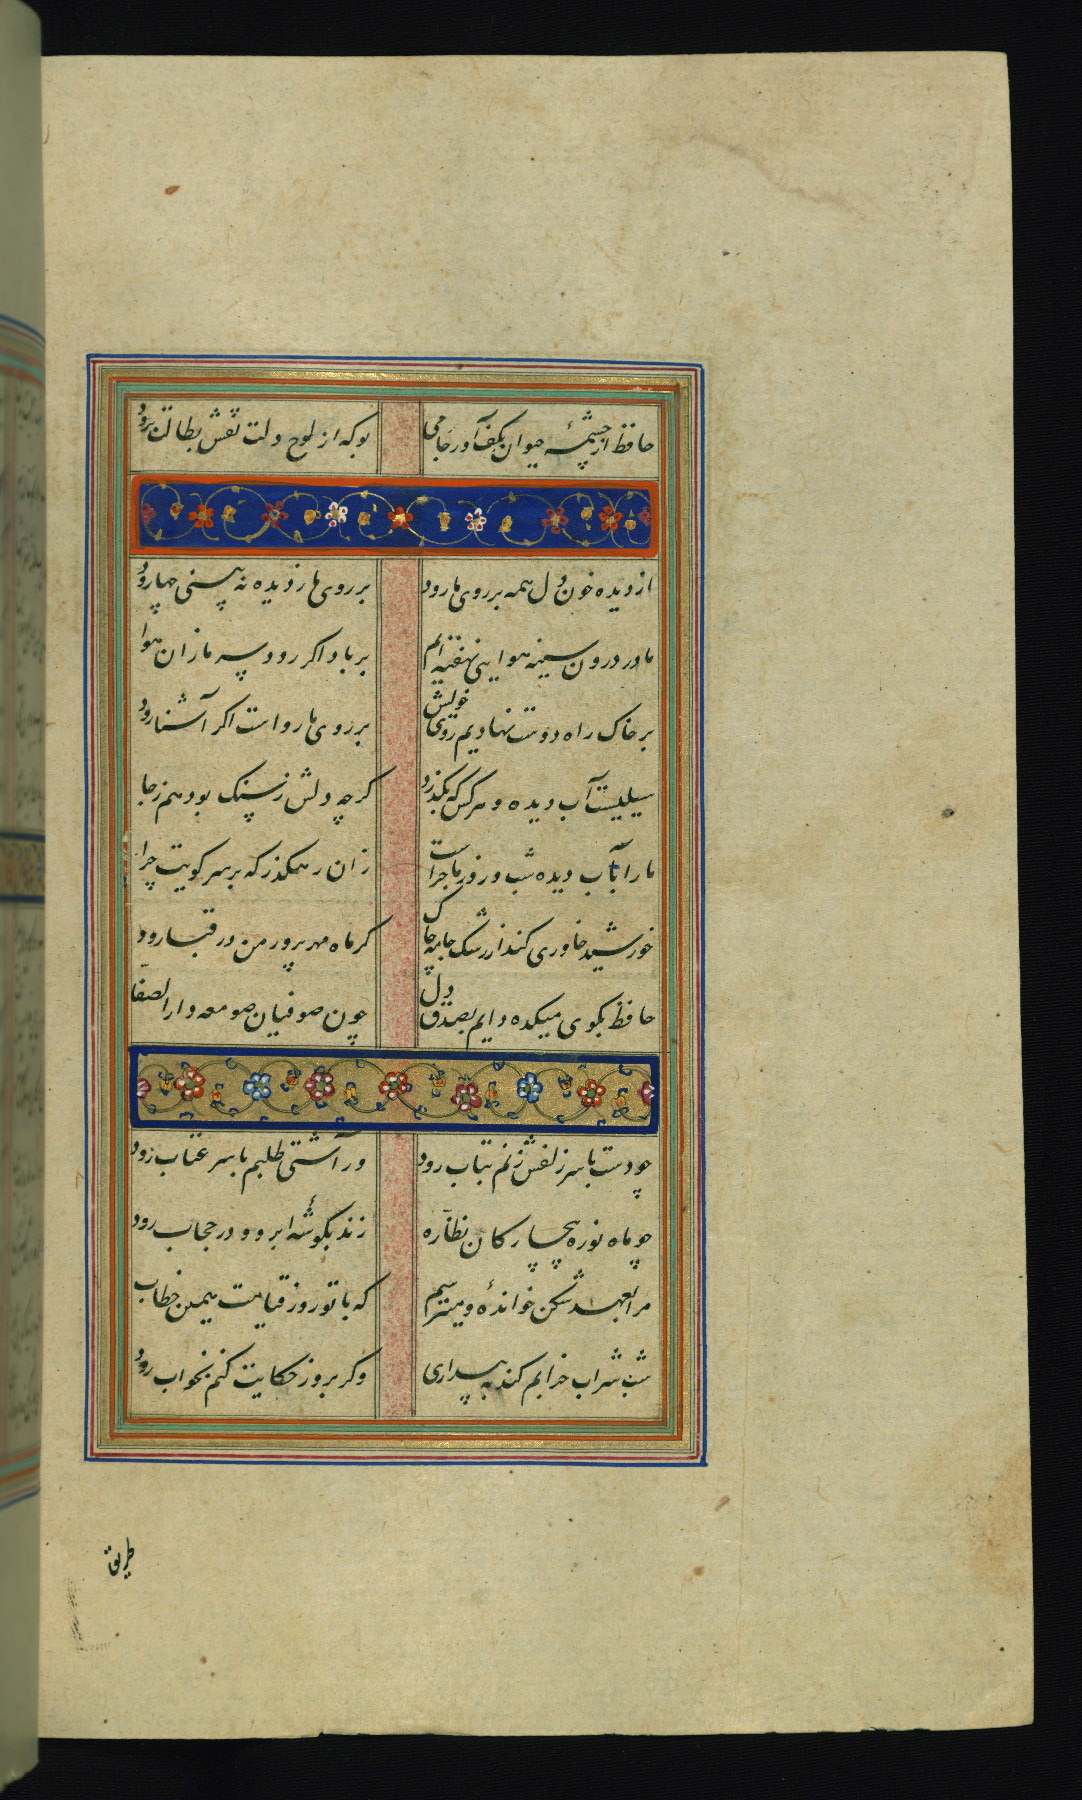 حافظ از چشمهٔ حیوان بکف آور جامی بو که از لوح دلت نقش بطالت برود
از دیده خون دل همه بر روی ما رود بر روی ما ز دیده نه بینی چها رود
ما در درون سینه هوایی نهفته‌ایم بر باد اکر رود سر ما زان هوا
بر خاک راه دوست نهادیم روی خویش بر روی ما رواست اکر آشنا رود
سیلیست آب دیده و هر کس که بکذرد کرچه دلش ز سنک بود هم ز جا
ما را بآب دیده شب و روز ماجراست زان رهکذر که بر سر کویت چرا
خورشید خاوری کند از رشک جامه چاک کر ماه مهرپرور من در قبا رود
حافظ بکوی میکده دایم بصدق دل چون صوفیان صومعه دار الصفا
چو دست با سر زلفش زنم بتاب رود ور آشتی طلبم با سر عتاب رود
چو ماه نو ره بیچارکان نظاره زند بکوشه ابرو و در حجاب رود
مرا عهد شکن خواندهٔ و میترسم که با تو روز قیامت همین خطاب
شب شراب خرابم کند به بیداری وکر بروز حکایت کنم بخواب رود
طریق